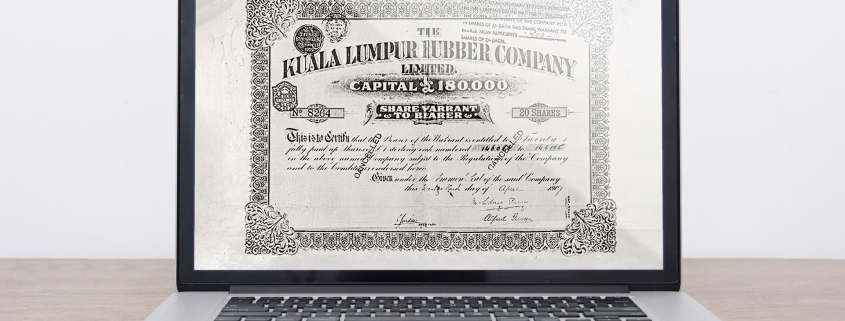 THE CAPITAL OF THE COMPANY WITH
IN SHARES OF 2/- EACH THIS SHARE WARRANT TO
BEARER NOW REPRESENTS
SHARES OF 2/- EACH.
THE
KUALA LUMPUR RUBBER COMPANY
LIMITED.
CAPITAL £180,000
SHARE WARRANT
TO BEARER
Nº 8264
20 SHARES
This is to Certify that the Bearer of this Warrant is entitled to Twenty
fully paid up Shares of £1 sterling each numbered to
in the above named Company subject to the Regulations of the Company
and to the Conditions endorsed hereon.
CANCELLED
CANCELLED
Given under the Common Seal of the said Company
this day of April 1907